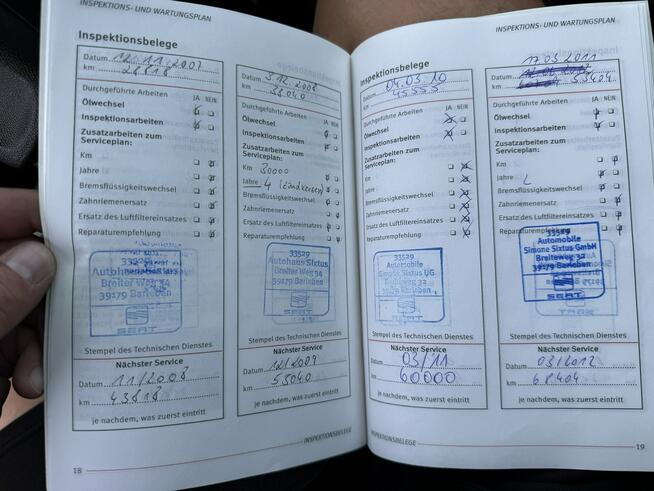 INSPEKTIONS- UND WARTUNGSPLAN
Inspektionsbelege
Datum 12.11.2007
km 28818
Durchgeführte Arbeiten JA NEIN
Ölwechsel
Inspektionsarbeiten
Zusatzarbeiten zum
Serviceplan:
Km
Jahre
Bremsflüssigkeitswechsel
Zahnriemenersatz
Ersatz des Luftfiltereinsatzes
Reparaturempfehlung
33529
Autohaus Sixtus
Breiter Weg 34
39179 Barleben
SEAT
Stempel des Technischen Dienstes
Nächster Service
Datum 11/2008
km 43818
je nachdem, was zuerst eintritt
Datum 3.12.2008
km 38040
Durchgeführte Arbeiten JA NEIN
Ölwechsel
Inspektionsarbeiten
Zusatzarbeiten zum
Serviceplan:
Km 30000
Jahre 4 (Zündkerzen)
Bremsflüssigkeitswechsel
Zahnriemenersatz
Ersatz des Luftfiltereinsatzes
Reparaturempfehlung
33529
Autohaus Sixtus
Breiter Weg 34
39179 Barleben
SEAT
Stempel des Technischen Dienstes
Nächster Service
Datum 12/2009
km 53040
je nachdem, was zuerst eintritt
INSPEKTIONSBELEGE
18
INSPEKTIONS- UND WARTUNGSPLAN
Inspektionsbelege
Datum 04.03.10
km 45553
Durchgeführte Arbeiten JA NEIN
Ölwechsel
Inspektionsarbeiten
Zusatzarbeiten zum
Serviceplan:
Km
Jahre
Bremsflüssigkeitswechsel
Zahnriemenersatz
Ersatz des Luftfiltereinsatzes
Reparaturempfehlung
33529
Automobile
Simone Sixtus UG
Breiteweg 32
39179 Barleben
SEAT
Stempel des Technischen Dienstes
Nächster Service
Datum 03/11
km 60000
je nachdem, was zuerst eintritt
17.03.2011
Datum
km 53404
Durchgeführte Arbeiten JA NEIN
Ölwechsel
Inspektionsarbeiten
Zusatzarbeiten zum
Serviceplan:
Km
Jahre
Bremsflüssigkeitswechsel
Zahnriemenersatz
Ersatz des Luftfiltereinsatzes
Reparaturempfehlung
33529
Automobile
Simone Sixtus GmbH
Breiteweg 32
39179 Barleben
SEAT
Stempel des Technischen Dienstes
Nächster Service
Datum 03/2012
km 68404
je nachdem, was zuerst eintritt
INSPEKTIONSBELEGE
19